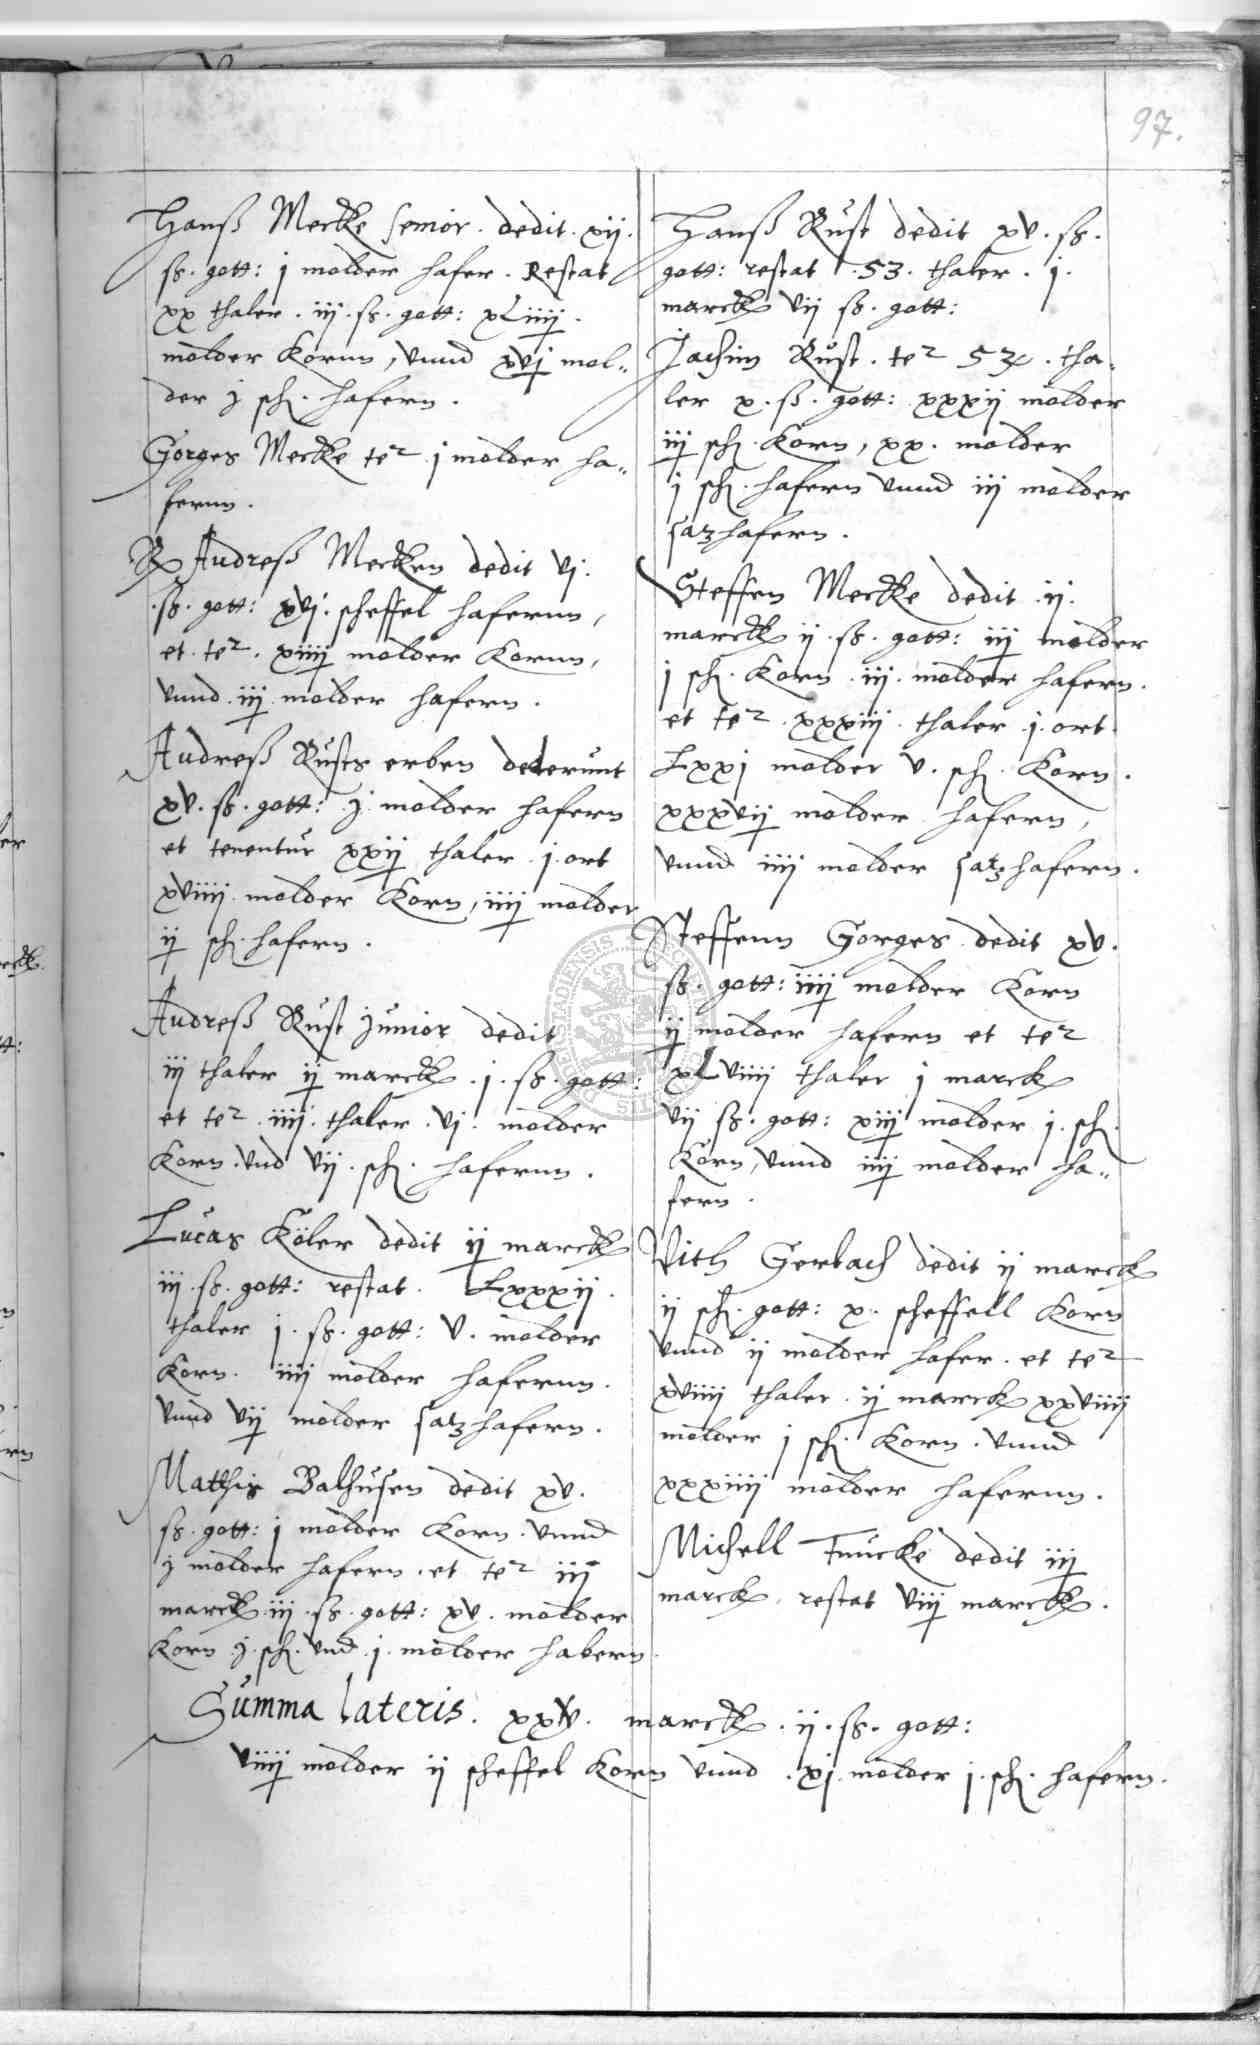 97.
Hanß Mercke senior. dedit. xij.
ß. gott: j molder hafer. Restat
xx thaler. iij. ß. gott: xLiiij.
molder Kornn, vnnd xvj mol„
der j sch. hafern.
Gorges Mercke te² j molder ha„
fernn.
Andreß Mercken dedit vj.
ß. gott: xvj. scheffel hafernn,
et te². xiiij molder Kornn,
vnnd iij molder hafern.
Andreß Rusts erben dederunt
xv. ß. gott: j molder hafern
et tenentur xxij thaler. j. ort
xviiij molder Korn, iiij molder
ij sch. hafern.
Andreß Rust junior dedit
iij thaler ij marck. j. ß. gott:
et te². iiij. thaler. vj. molder
Korn. vnd vij. sch. hafernn.
Lucas Köler dedit ij marck
iij. ß. gott: restat. Lxxxij.
thaler j. ß. gott: v. molder
Korn. iiij molder hafernn.
vnnd vij molder satzhafern.
Matthis Balhusen dedit xv.
ß. gott: j molder Korn. vnnd
j molder hafern. et te² iij
marck. iij. ß. gott: xv. molder
Korn. j. sch. vnd. j. molder habern.
Hanß Rust dedit xv. ß.
gott: restat. 53. thaler. j.
marck vij ß. gott:
Jachim Rust. te² . tha.
ler x. ß. gott: xxxij molder
iij sch. Korn, xx. molder
j sch. hafern vnnd iij molder
satzhafern.
Steffen Mercke dedit. ij.
marck ij. ß. gott: iij molder
j sch. Korn. iij. molder hafern.
et te². xxxiij. thaler. j. ort
Lxxj molder v. sch. Korn.
xxxvij molder hafern,
vnnd iiij molder satzhafern.
Steffenn Gorges dedit xv.
ß. gott: iiij molder Korn
ij molder hafern et te²
xLviiij thaler j marck
vij ß. gott: xiij molder. j. sch.
Korn, vnnd iiij molder ha„
fern.
Vith Gerlach dedit ij marck
ij sch. gott: x. scheffell Korn
vnnd ij molder hafer. et te²
xviiij thaler. ij marck xxviiij
molder j sch. Korn. vnnd
xxxiiij molder hafernn.
Michell dedit iij
marck, restat viij marck.
Summa lateris. xxv. marck. ij. ß. gott:
viiij molder ij scheffel Korn vnnd. xj. molder j. sch. hafern.